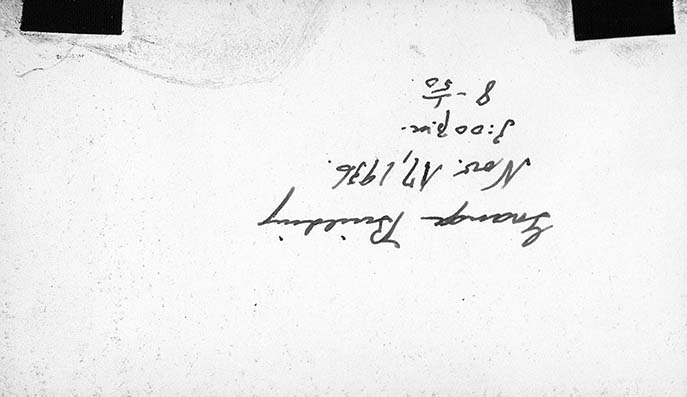 Grange Building
Nov. 17, 1936.
3:00 p.m.
8 - 1/50